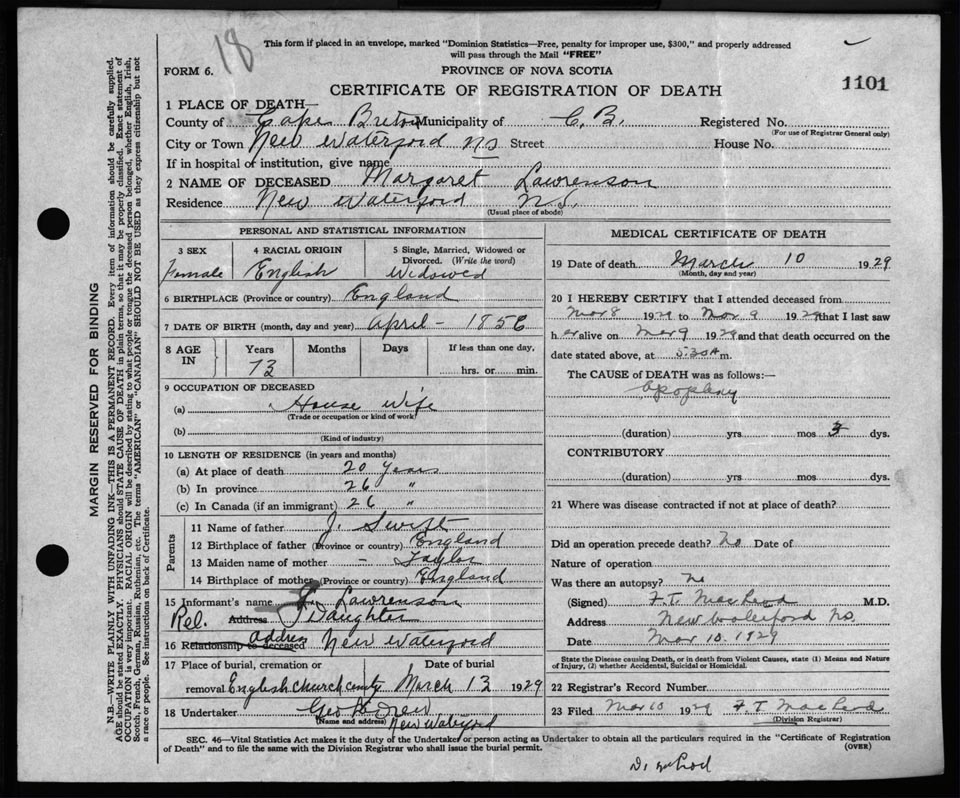 18
This form if placed in an envelope, marked "Dominion Statistics—Free, penalty for improper use, $300," and properly addressed
will pass through the Mail "FREE"
FORM 6.
PROVINCE OF NOVA SCOTIA
1101
CERTIFICATE OF REGISTRATION OF DEATH
1 PLACE OF DEATH—
County of Cape Breton Municipality of C. B. Registered No.
(For use of Registrar General only)
City or Town New Waterford NS Street House No.
If in hospital or institution, give name
2 NAME OF DECEASED Margaret Lawrenson
Residence New Waterford N.S.
(Usual place of abode)
PERSONAL AND STATISTICAL INFORMATION
3 SEX
Female
4 RACIAL ORIGIN
English
5 Single, Married, Widowed or
Divorced. (Write the word)
Widowed
6 BIRTHPLACE (Province or country) England
7 DATE OF BIRTH (month, day and year) April - 1856
8 AGE IN
Years
73
Months
Days
If less than one day,
hrs. or min.
9 OCCUPATION OF DECEASED
(a) House Wife
(Trade or occupation or kind of work)
(b)
(Kind of industry)
10 LENGTH OF RESIDENCE (in years and months)
(a) At place of death 20 Years
(b) In province 26 "
(c) In Canada (if an immigrant) 26 "
Parents
11 Name of father J. Swift
12 Birthplace of father (Province or country) England
13 Maiden name of mother - Taylor
14 Birthplace of mother (Province or country) England
15 Informant's name Lawrenson
Rel. Address Daughter
16 Relationship to deceased address New Waterford
17 Place of burial, cremation or Date of burial
removal English church March 13 1929
18 Undertaker Geo H Drew
(Name and address) New Waterford
MEDICAL CERTIFICATE OF DEATH
19 Date of death March 10 1929
(Month, day and year)
20 I HEREBY CERTIFY that I attended deceased from
Mar 8 1929 to Mar 9 1929 that I last saw
her alive on Mar 9 1929 and that death occurred on the
date stated above, at 5.30 A m.
The CAUSE of DEATH was as follows:—
Apoplexy
(duration) yrs mos 3 dys.
CONTRIBUTORY
(duration) yrs mos dys.
21 Where was disease contracted if not at place of death?
Did an operation precede death? No Date of
Nature of operation
Was there an autopsy? No
(Signed) F. T. MacLeod M.D.
Address New Waterford NS.
Date Mar 10. 1929
State the Disease causing Death, or in death from Violent Causes, state (1) Means and Nature
of Injury, (2) whether Accidental, Suicidal or Homicidal.
22 Registrar's Record Number
23 Filed Mar 10 1929 F. T. MacLeod
(Division Registrar)
SEC. 46—Vital Statistics Act makes it the duty of the Undertaker or person acting as Undertaker to obtain all the particulars required in the "Certificate of Registration
of Death" and to file the same with the Division Registrar who shall issue the burial permit.
(OVER)
MARGIN RESERVED FOR BINDING
N.B.—WRITE PLAINLY WITH UNFADING INK—THIS IS A PERMANENT RECORD. Every item of information should be carefully supplied.
AGE should be stated EXACTLY. PHYSICIANS should STATE CAUSE OF DEATH in plain terms, so that it may be properly classified. Exact statement of
OCCUPATION is very important. RACIAL ORIGIN will be described by stating to what people or tongue the deceased person belonged, whether English, Irish,
Scotch, French, German, Russian, Ruthenian, etc. The terms "AMERICAN" or "CANADIAN" SHOULD NOT BE USED as they express citizenship but not
a race or people. See instructions on back of Certificate.